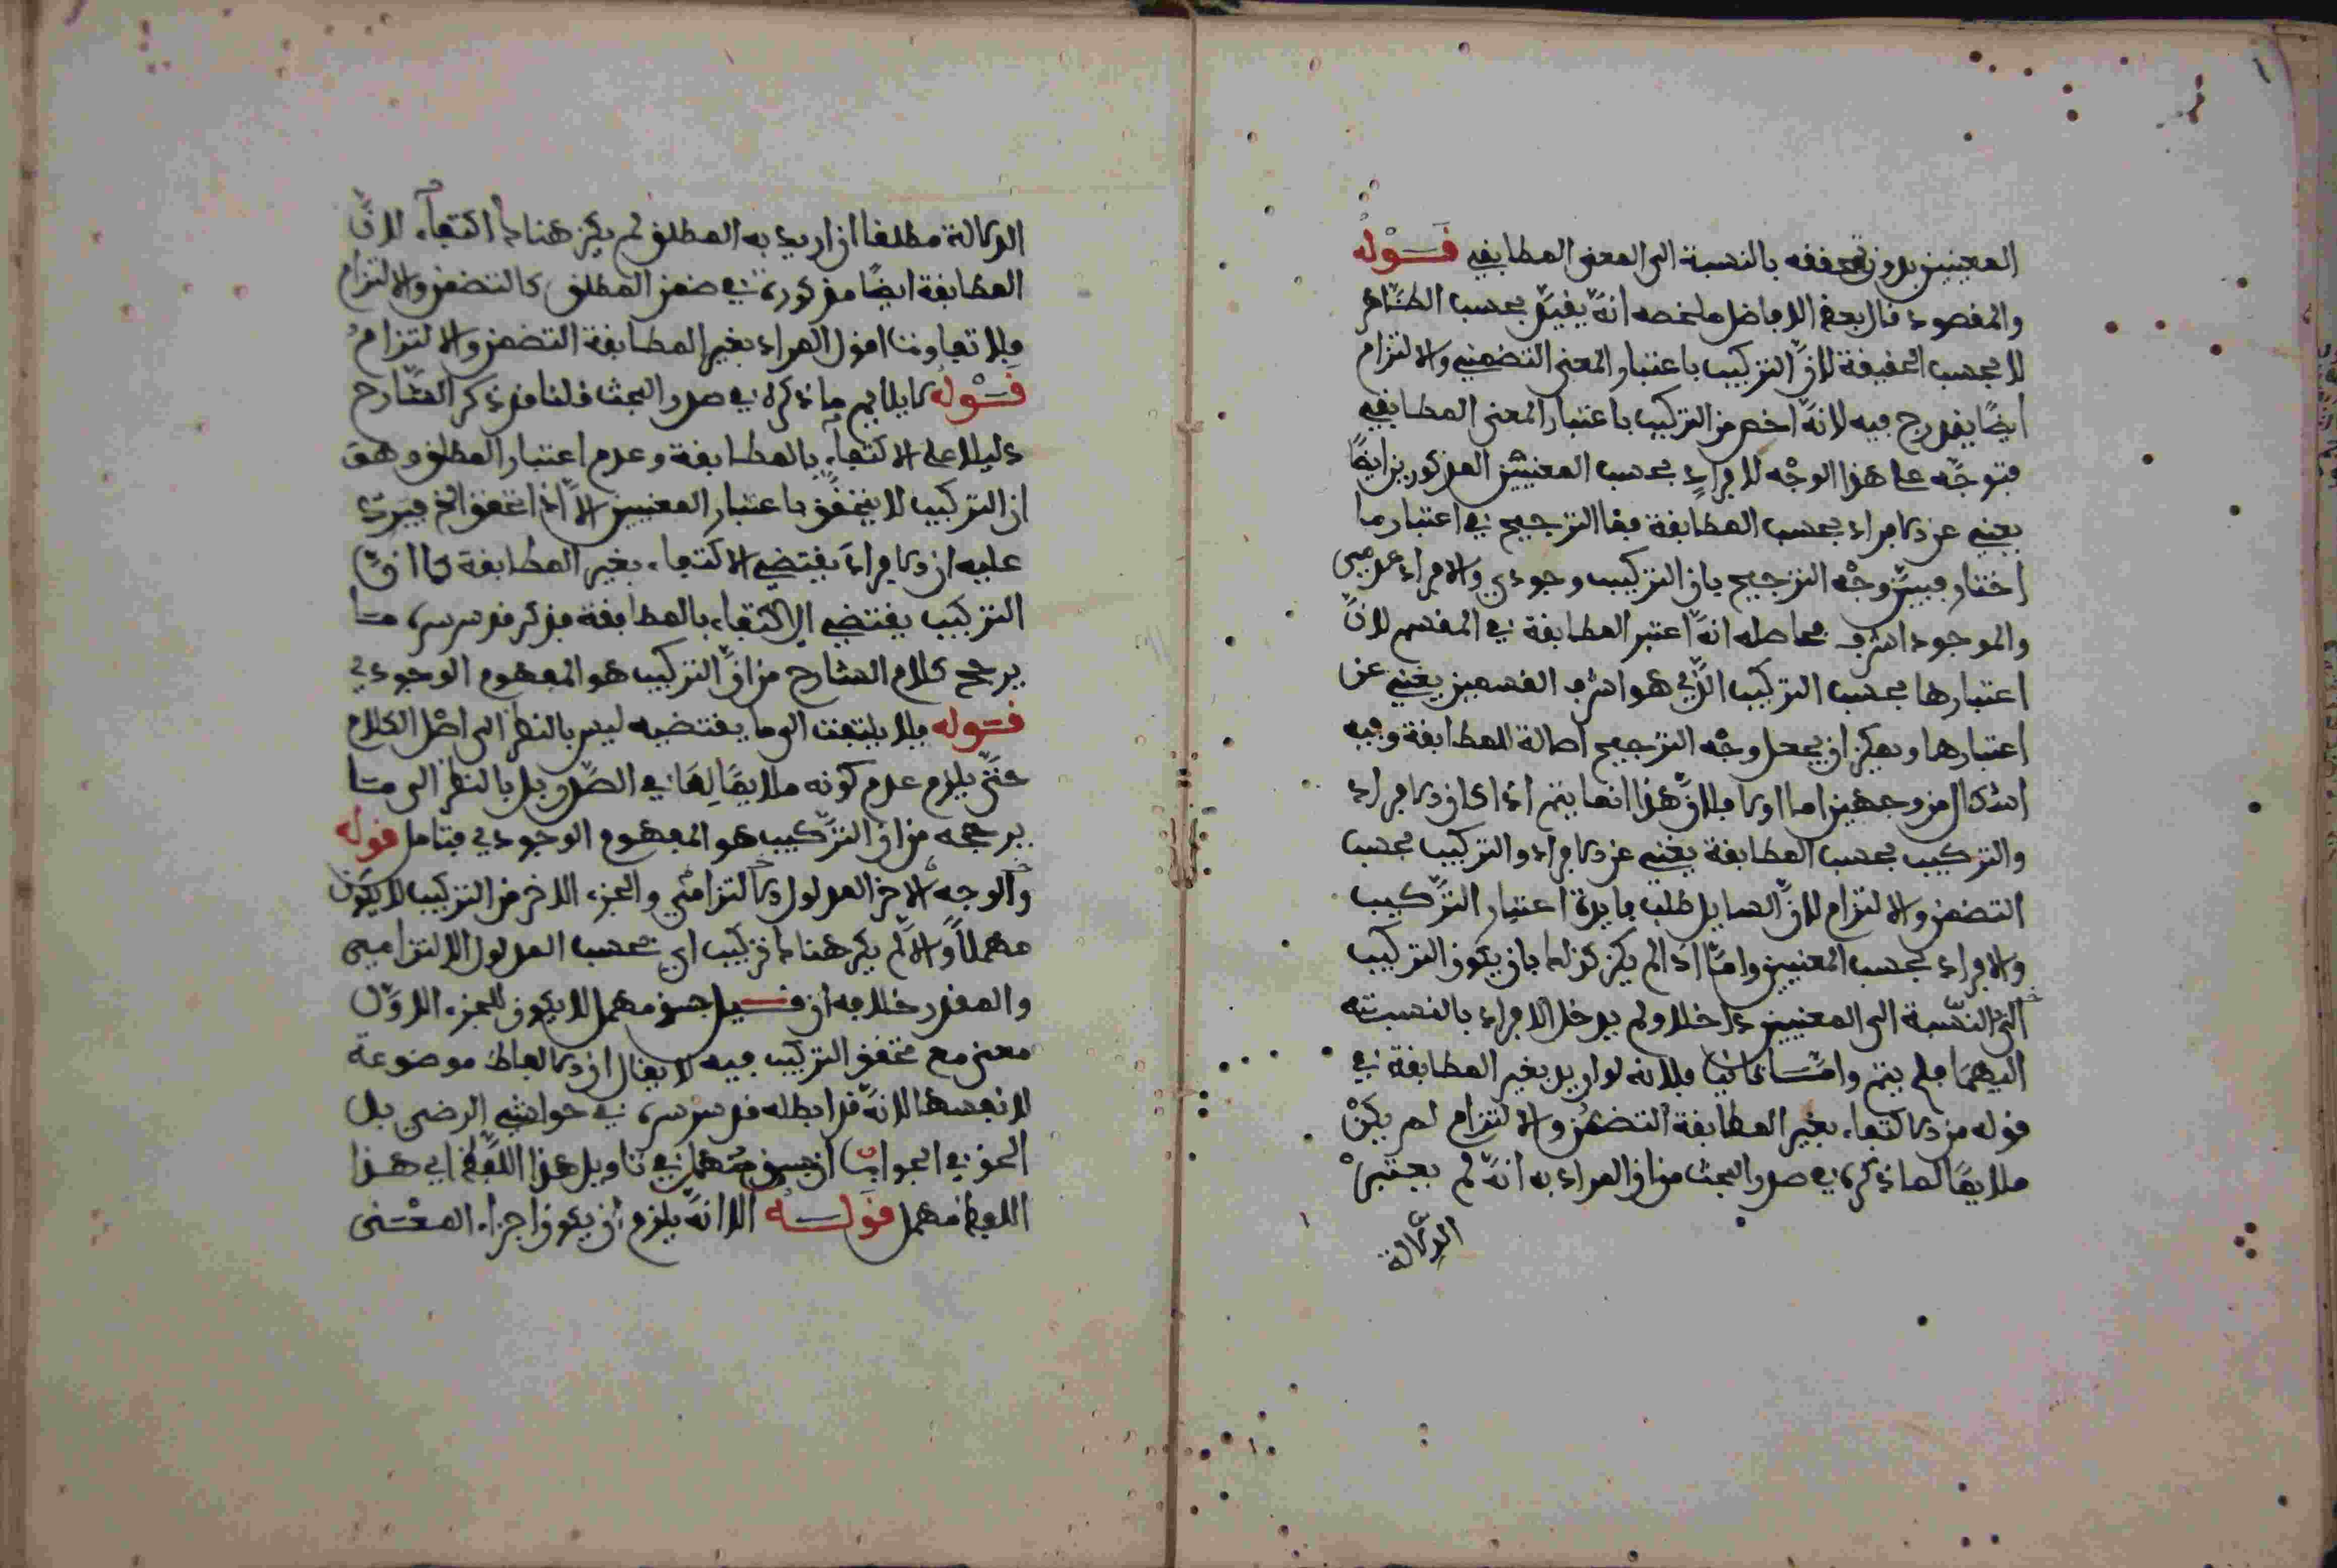 المعنيين بدون تحققه بالنسبة الى المعنى المطابقي قوله
والمقصود قال بعض الافاضل ملخصه انه يفيد بحسب الظاهر
لا بحسب الحقيقة لان التركيب باعتبار المعنى التضمني والالتزام
ايضا يندرج فيه لانه اخص من التركيب باعتبار المعنى المطابقي
فتوجه على هذا الوجه للافراد بحسب المعنيين المذكورين ايضا
يغني عن الافراد بحسب المطابقة فما الترجيح في اعتبار ما
اختار فبين وجه الترجيح بان التركيب وجودي والافراد عدمي
والموجود اشرف فحاصله انه اعتبر المطابقة في المقسم لان
اعتبارها بحسب التركيب الذي هو اشرف القسمين يغني عن
اعتبارها ويمكن ان يجعل وجه الترجيح اصالة المطابقة وفيه
اشكال من وجهين اما اولا فلان هذا انما يتم اذا كان الافراد
والتركيب بحسب المطابقة يغني عن الافراد والتركيب بحسب
التضمن والالتزام لان السايل طلب فايدة اعتبار التركيب
والافراد بحسب المعنيين واما اذا لم يكن كذلك بان يكون التركيب
بالنسبة الى المعنيين داخلا ولم يدخل الافراد بالنسبة
اليهما فلم يتم واما ثانيا فلانه لو اريد بغير المطابقة في
قوله من الاكتفاء بغير المطابقة التضمن والالتزام لم يكن
ملايما لما ذكره في صدر البحث من ان المراد به انه لم يعتبر
الدلالة
الدلالة مطلقا ان اريد به المطلق لم يكن هناك اكتفاء لان
المطابقة ايضا مذكورة في ضمن المطلق كالتضمن والالتزام
فلا تفاوت اقول المراد بغير المطابقة التضمن والالتزام
قوله لا يلايم ما ذكره في صدر البحث قلنا قد ذكر الشارح
دليلا على الاكتفاء بالمطابقة وعدم اعتبار المطلق وهو
ان التركيب لا يتحقق باعتبار المعنيين الا اذا تحقق الخ فيرد
عليه ان الافراد يقتضي الاكتفاء بغير المطابقة كما ان
التركيب يقتضي الاكتفاء بالمطابقة فذكر قدس سره ما
يرجح كلام الشارح من ان التركيب هو المفهوم الوجودي
قوله فلا يلتفت الى ما يقتضيه ليس بالنظر الى اصل الكلام
حتى يلزم عدم كونه ملايما لما في الصدر بل بالنظر الى ما
يرجحه من ان التركيب هو المفهوم الوجودي فتامل قوله
والوجه الاخر المدلول الالتزامي والجزء الاخر من التركيب لا يكون
مهملا والا لم يكن هناك تركيب اي بحسب المدلول الالتزامي
والمقدر خلافه ان قيل جسق مهمل لا يكون للجزء الاول
معنى مع تحقق التركيب فيه لا يقال ان الالفاظ موضوعة
لانفسها لانه قد ابطله قدس سره في حواشي الرضي بل
الحق في الجواب ان جسق مهمل في تاويل هذا اللفظ اي هذا
اللفظ مهمل قوله الا انه يلزم ان يكون اجزاء المعنى